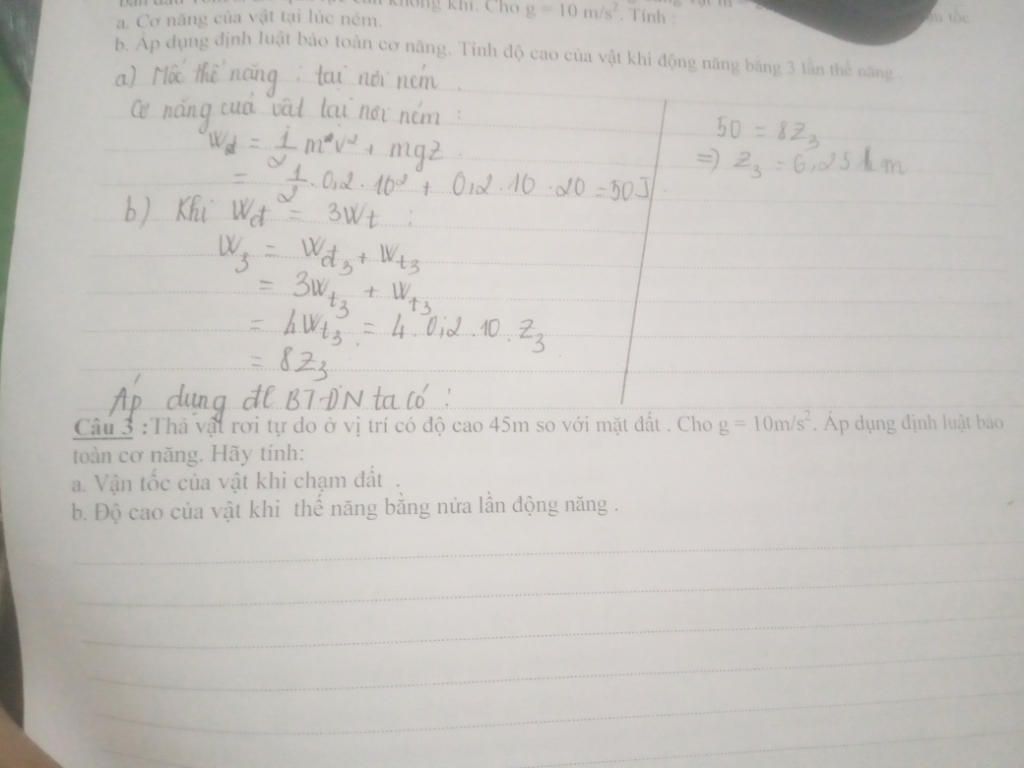 cản không khí. Cho g = 10 m/s². Tính :
a. Cơ năng của vật tại lúc ném.
b. Áp dụng định luật bảo toàn cơ năng. Tính độ cao của vật khi động năng bằng 3 lần thế năng .
a) Mốc thế năng : tại nơi ném .
Cơ năng cuả vật tại nơi ném :
Wđ = 1/2 m v² + mgz
= 1/2 . 0,2 . 10² + 0,2 . 10 . 20 = 50J
b) Khi Wđ = 3Wt :
W3 = Wđ3 + Wt3
= 3Wt3 + Wt3
= 4Wt3 = 4 . 0,2 . 10 . Z3
= 8Z3
Áp dụng đl BTĐN ta có :
50 = 8Z3
=) Z3 = 6,25 m
Câu 3 : Thả vật rơi tự do ở vị trí có độ cao 45m so với mặt đất . Cho g = 10m/s². Áp dụng định luật bảo
toàn cơ năng. Hãy tính:
a. Vận tốc của vật khi chạm đất .
b. Độ cao của vật khi thế năng bằng nửa lần động năng .